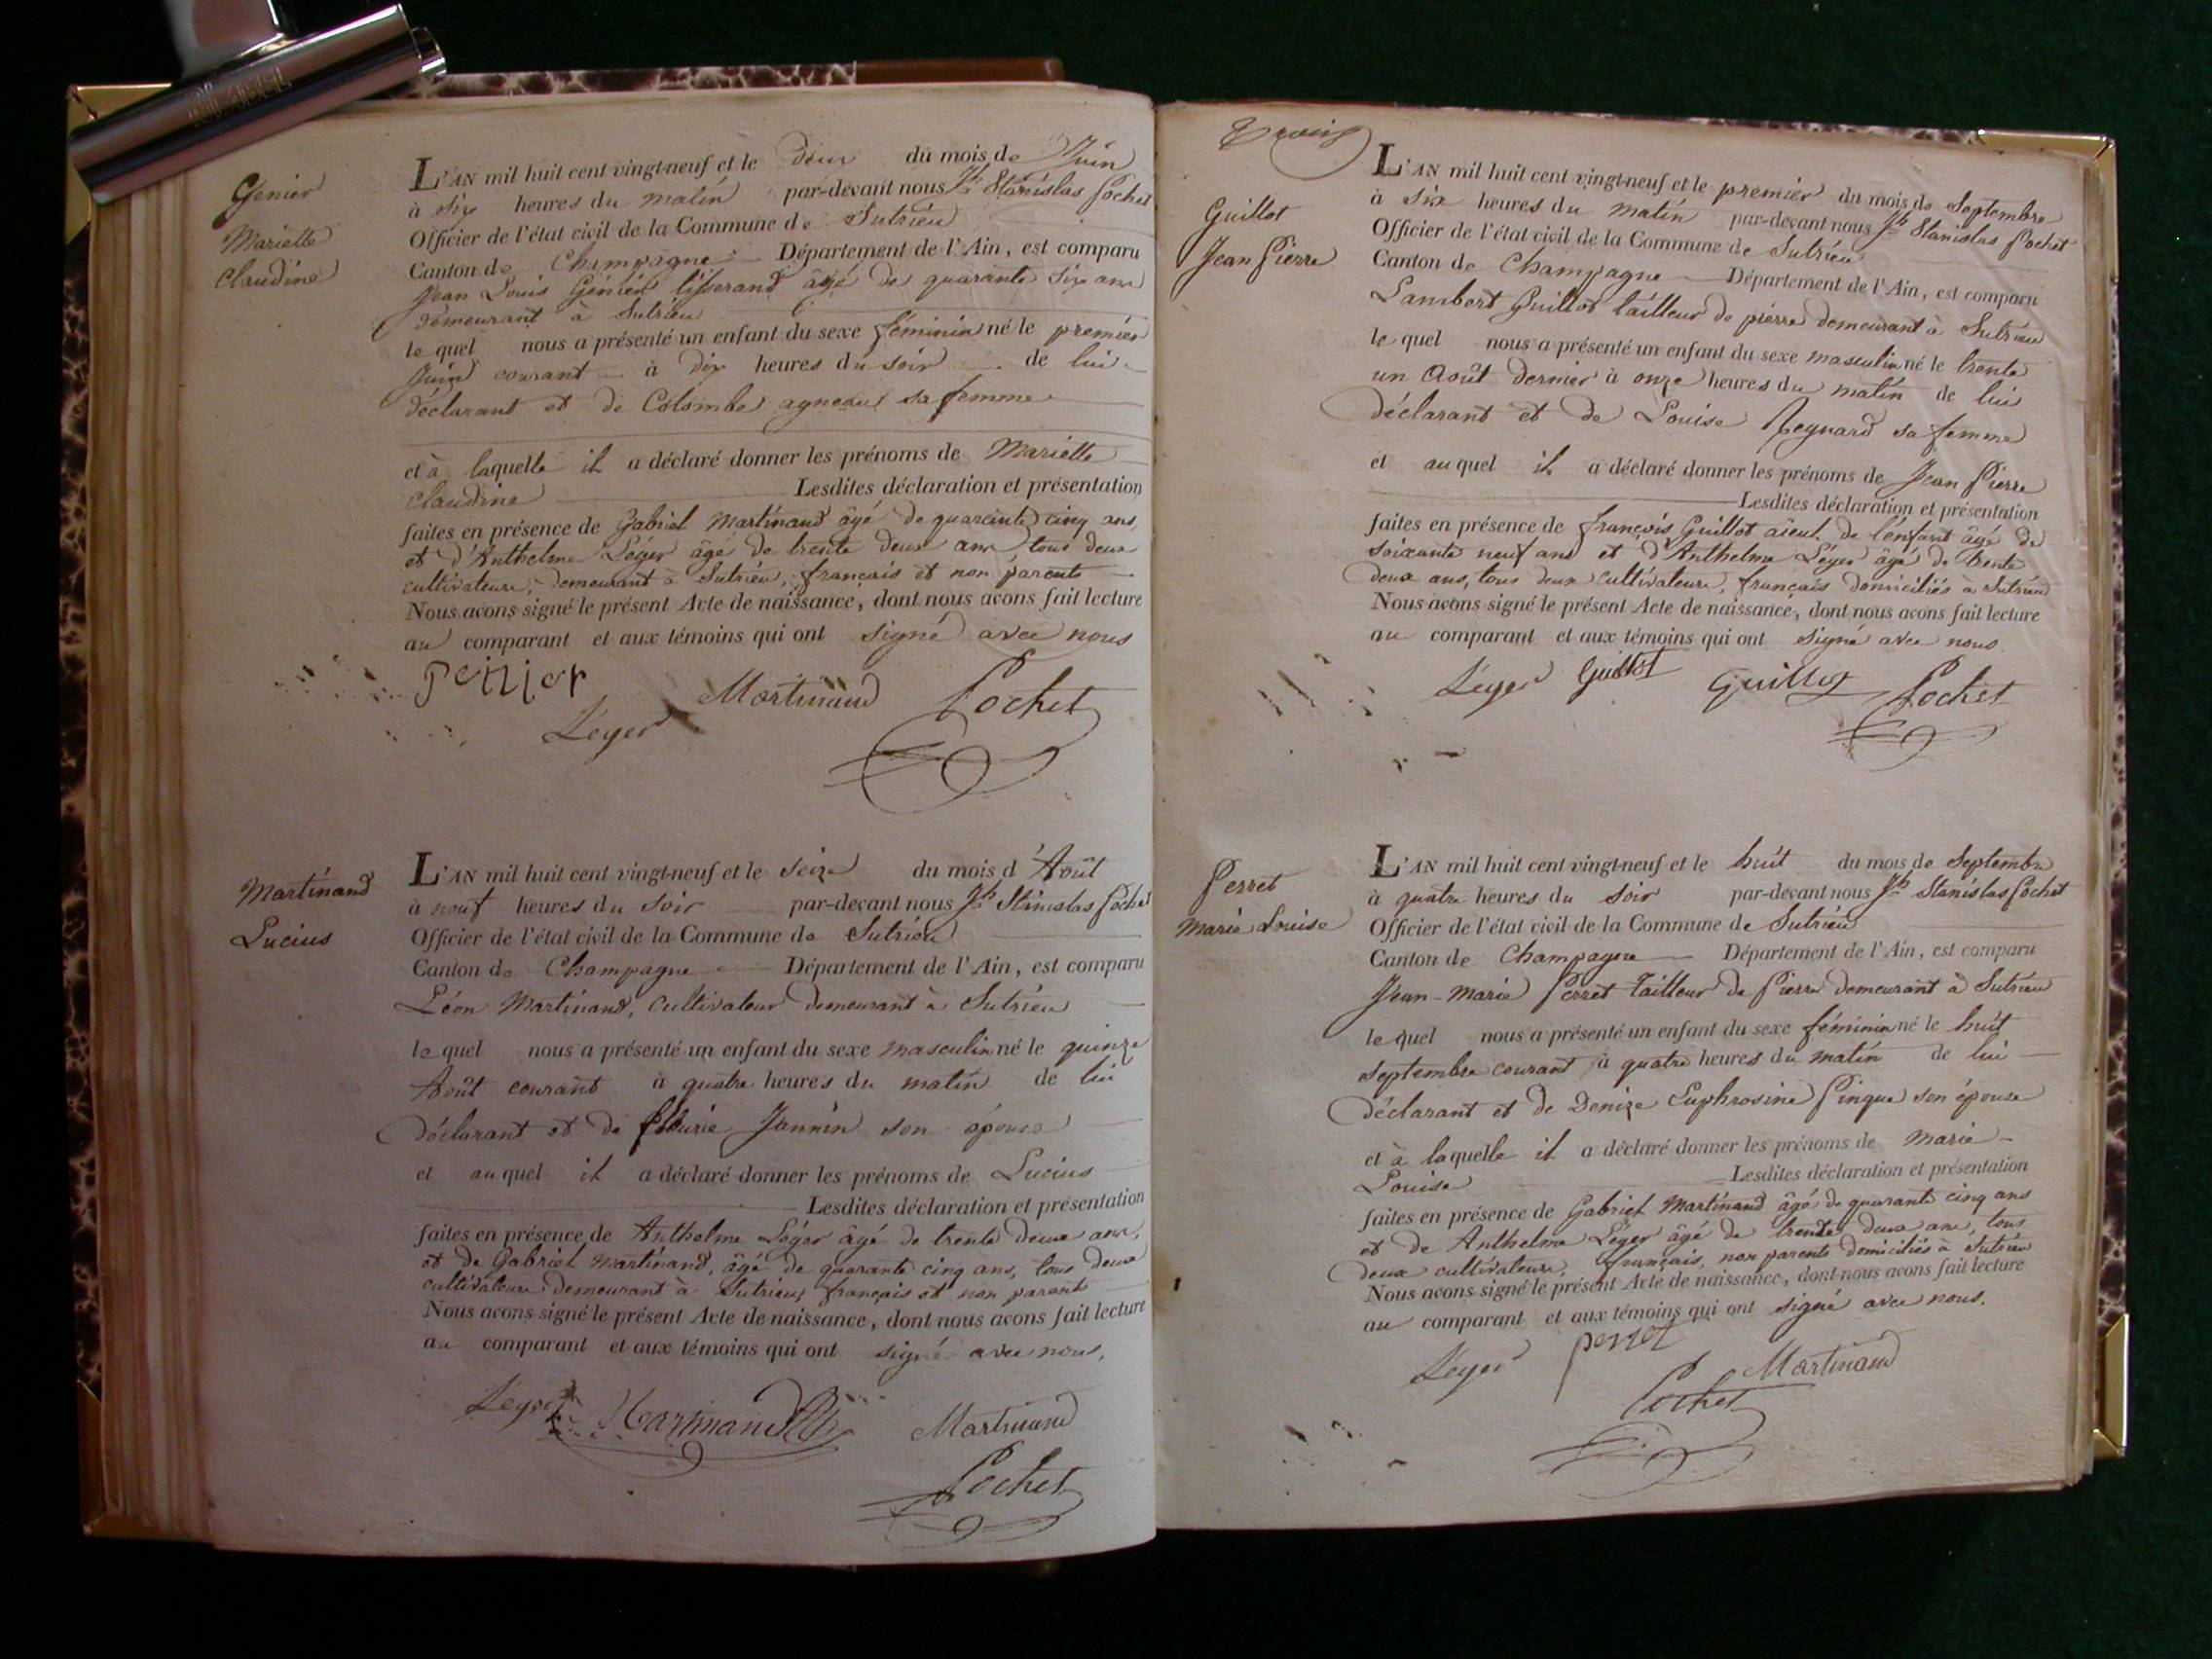 Genier
Mariette
Claudine
L'AN mil huit cent vingt-neuf et le deux du mois de Juin
à six heures du matin par-devant nous Jh Stanislas Pochet
Officier de l'état civil de la Commune de Sutrieu
Canton de Champagne Département de l'Ain, est comparu
Jean Louis Genier tisserand âgé de quarante six ans
demeurant à Sutrieu
le quel nous a présenté un enfant du sexe féminin né le premier
Juin courant à dix heures du soir de lui
déclarant et de Colombe agneau sa femme
et à laquelle il a déclaré donner les prénoms de Mariette
Claudine Lesdites déclaration et présentation
faites en présence de Gabriel Martinand âgé de quarante cinq ans,
et d'Anthelme Léger âgé de trente deux ans, tous deux
cultivateurs, demeurant à Sutrieu, français et non parents
Nous avons signé le présent Acte de naissance, dont nous avons fait lecture
au comparant et aux témoins qui ont signé avec nous
Martinand Pochet
Léger
Martinand
Lucius
L'AN mil huit cent vingt-neuf et le seize du mois d'Août
à neuf heures du soir par-devant nous Jh Stanislas Pochet
Officier de l'état civil de la Commune de Sutrieu
Canton de Champagne Département de l'Ain, est comparu
Léon Martinand, cultivateur demeurant à Sutrieu
le quel nous a présenté un enfant du sexe masculin né le quinze
Août courant à quatre heures du matin de lui
déclarant et de fleurie Jannin son épouse
et au quel il a déclaré donner les prénoms de Lucius
Lesdites déclaration et présentation
faites en présence de Anthelme Léger âgé de trente deux ans,
et de Gabriel Martinand, âgé de quarante cinq ans, tous deux
cultivateurs demeurant à Sutrieu, français et non parents
Nous avons signé le présent Acte de naissance, dont nous avons fait lecture
au comparant et aux témoins qui ont signé avec nous.
Léger Martinand Martinand
Pochet
Trois
Guillot
Jean Pierre
L'AN mil huit cent vingt-neuf et le premier du mois de Septembre
à six heures du matin par-devant nous Jh Stanislas Pochet
Officier de l'état civil de la Commune de Sutrieu
Canton de Champagne Département de l'Ain, est comparu
Lambert Guillot tailleur de pierre demeurant à Sutrieu
le quel nous a présenté un enfant du sexe masculin né le trente
un Août dernier à onze heures du matin de lui
déclarant et de Louise Reynard sa femme
et au quel il a déclaré donner les prénoms de Jean Pierre
Lesdites déclaration et présentation
faites en présence de françois Guillot aïeul de l'enfant âgé de
soixante neuf ans et d'Anthelme Léger âgé de trente
deux ans, tous deux cultivateurs, français domiciliés à Sutrieu
Nous avons signé le présent Acte de naissance, dont nous avons fait lecture
au comparant et aux témoins qui ont signé avec nous
Léger Guillot Guillot Pochet
Perret
Marie Louise
L'AN mil huit cent vingt-neuf et le huit du mois de Septembre
à quatre heures du soir par-devant nous Jh Stanislas Pochet
Officier de l'état civil de la Commune de Sutrieu
Canton de Champagne Département de l'Ain, est comparu
Jean-Marie Perret Tailleur de Pierre demeurant à Sutrieu
le quel nous a présenté un enfant du sexe féminin né le huit
septembre courant à quatre heures du matin de lui
déclarant et de Denize Euphrosine Pingue son épouse
et à laquelle il a déclaré donner les prénoms de Marie
Louise Lesdites déclaration et présentation
faites en présence de Gabriel Martinand âgé de quarante cinq ans
et de Anthelme Léger âgé de trente deux ans, tous
deux cultivateurs, français, non parents domiciliés à Sutrieu
Nous avons signé le présent Acte de naissance, dont nous avons fait lecture
au comparant et aux témoins qui ont signé avec nous.
Léger perret Martinand
Pochet